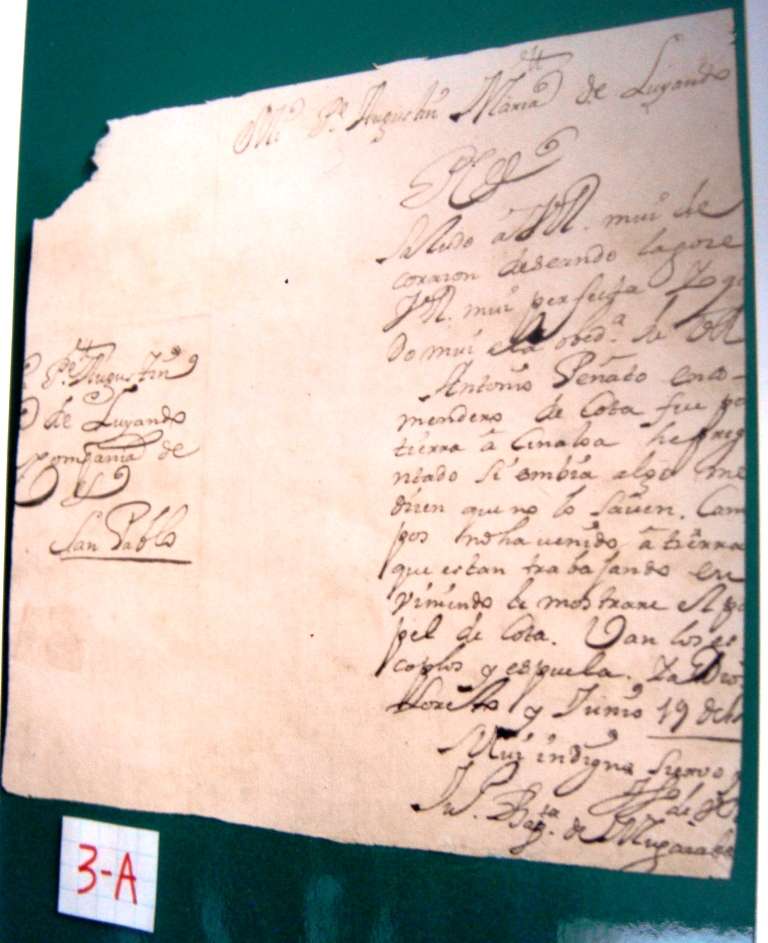 Mi Pe. Augustin Maria de Luyando
saludo à VR. mui de
corazon deseando lagoze
VR. mui perfecta
do mui a la obeda. de VR
Antonio Peñato enco-
mendero de Cota fue po
tierra à Cinaloa he preg
ntado si embia algo me
dizen que no lo saven. Cam
pos no ha venido à tierra
que estan trabajando en
viniendo le mostrare el pa
pel de Cota. Van los es
coplos y espuela. Dios
Loreto y Junio 19 de
Mui indigno siervo
de VR
Ju. Bapta. de Mugaza
Pe. Augustin
de Luyando
Compania de
San Pablo
3-A